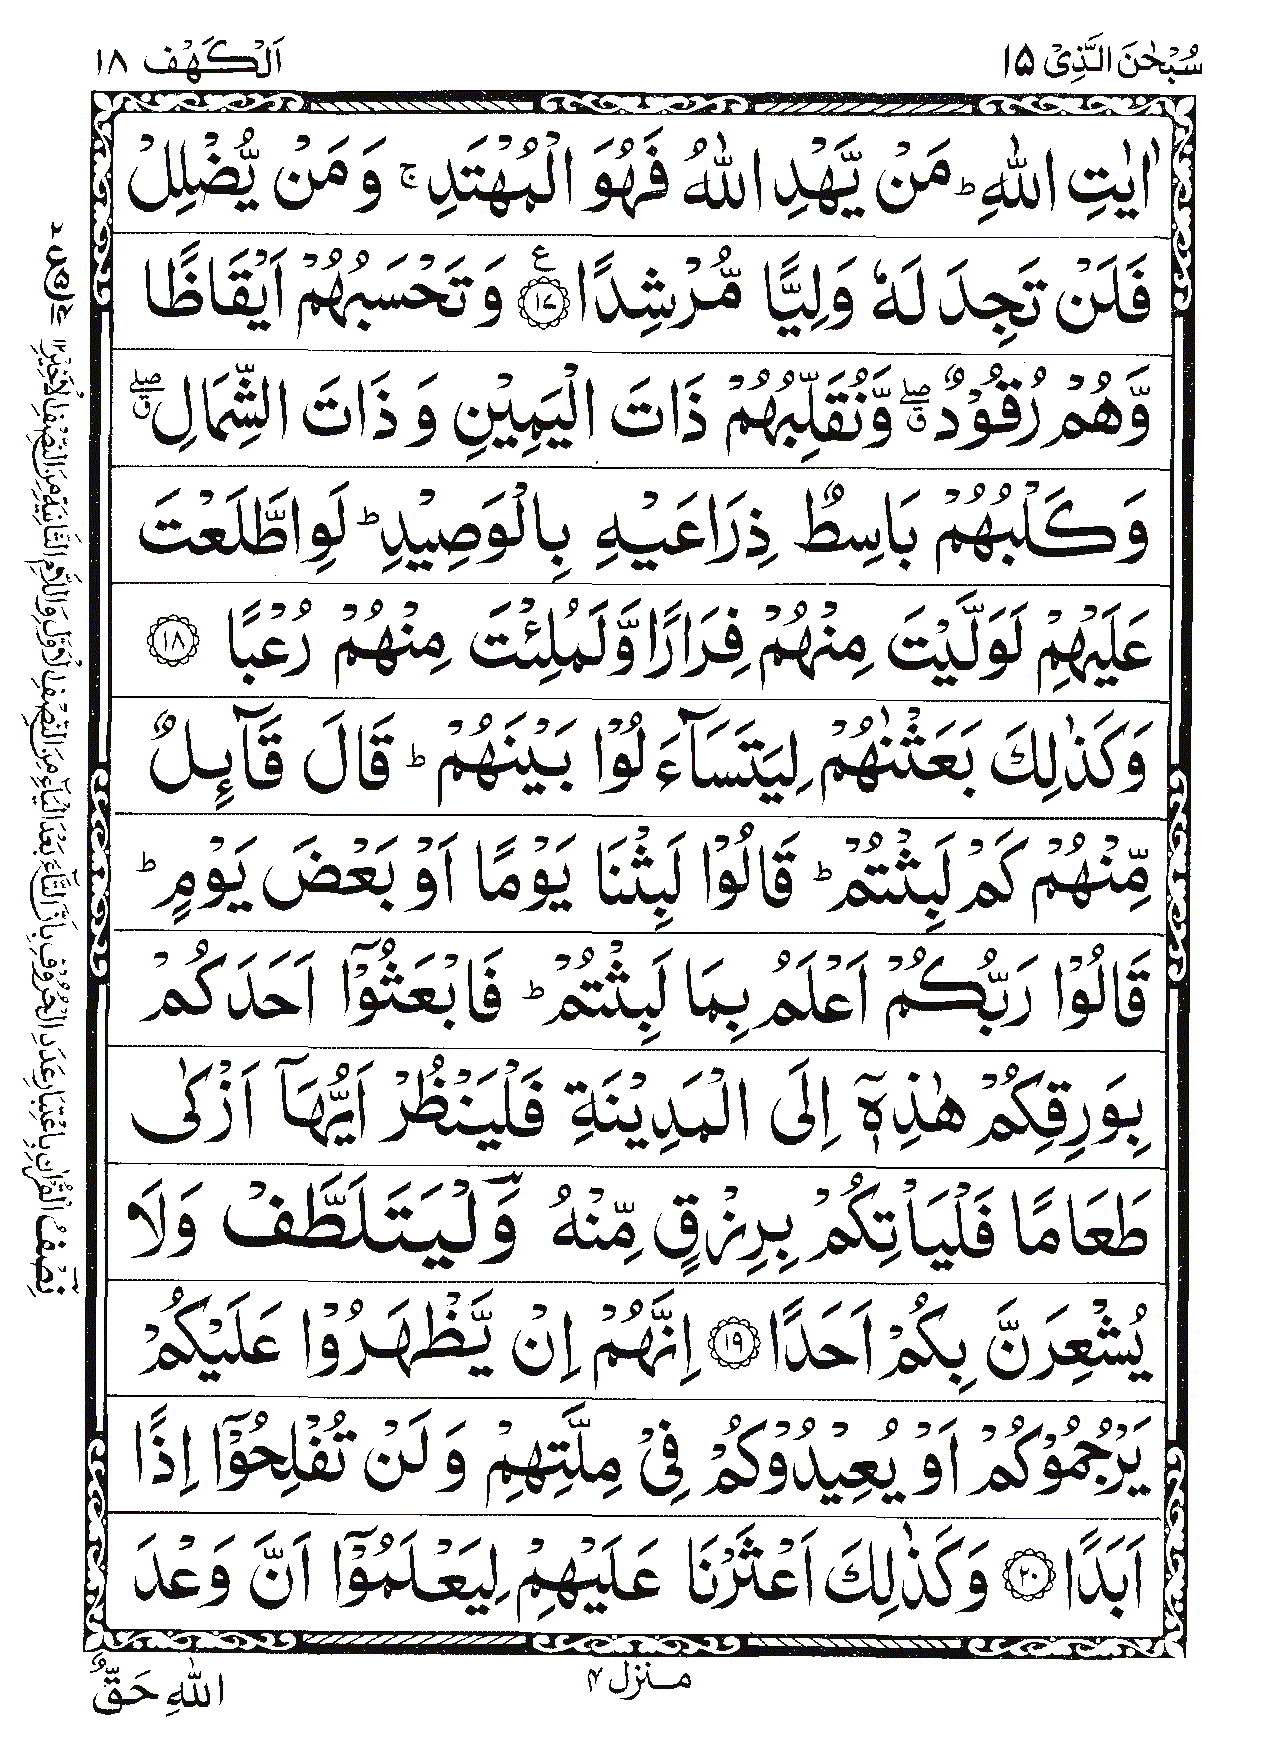 سُبْحٰنَ الَّذِیْ ۱۵
اَلْكَهْف ۱۸
اٰیٰتِ اللّٰهِ ؕ مَنْ یَّهْدِ اللّٰهُ فَهُوَ الْمُهْتَدِ ۚ وَ مَنْ یُّضْلِلْ
فَلَنْ تَجِدَ لَهٗ وَلِیًّا مُّرْشِدًا ۧ ﴿۱۷﴾ وَ تَحْسَبُهُمْ اَیْقَاظًا
وَّهُمْ رُقُوْدٌ ۖۗ وَّنُقَلِّبُهُمْ ذَاتَ الْیَمِیْنِ وَ ذَاتَ الشِّمَالِ ۖۗ
وَ كَلْبُهُمْ بَاسِطٌ ذِرَاعَیْهِ بِالْوَصِیْدِ ؕ لَوِاطَّلَعْتَ
عَلَیْهِمْ لَوَلَّیْتَ مِنْهُمْ فِرَارًا وَّلَمُلِئْتَ مِنْهُمْ رُعْبًا ﴿۱۸﴾
وَكَذٰلِكَ بَعَثْنٰهُمْ لِیَتَسَآءَلُوْا بَیْنَهُمْ ؕ قَالَ قَآىِٕلٌ
مِّنْهُمْ كَمْ لَبِثْتُمْ ؕ قَالُوْا لَبِثْنَا یَوْمًا اَوْ بَعْضَ یَوْمٍ ؕ
قَالُوْا رَبُّكُمْ اَعْلَمُ بِمَا لَبِثْتُمْ ؕ فَابْعَثُوْۤا اَحَدَكُمْ
بِوَرِقِكُمْ هٰذِهٖۤ اِلَى الْمَدِیْنَةِ فَلْیَنْظُرْ اَیُّهَاۤ اَزْكٰى
طَعَامًا فَلْیَاْتِكُمْ بِرِزْقٍ مِّنْهُ وَلْیَتَلَطَّفْ وَلَا
یُشْعِرَنَّ بِكُمْ اَحَدًا ﴿۱۹﴾ اِنَّهُمْ اِنْ یَّظْهَرُوْا عَلَیْكُمْ
یَرْجُمُوْكُمْ اَوْ یُعِیْدُوْكُمْ فِیْ مِلَّتِهِمْ وَ لَنْ تُفْلِحُوْۤا اِذًا
اَبَدًا ﴿۲۰﴾ وَ كَذٰلِكَ اَعْثَرْنَا عَلَیْهِمْ لِیَعْلَمُوْۤا اَنَّ وَعْدَ
نِصْفُ الْقُرْاٰنِ بِاعْتِبَارِ عَدَدِ الْحُرُوْفِ بِاَنَّ التَّآءَ بَعْدَ الْیَآءِ مِنَ النِّصْفِ الْاَوَّلِ وَاللَّامَ الثَّانِیَةَ مِنَ النِّصْفِ الْاَخِیْرِ ۱۲
منزل ۴
اللّٰهِ حَقٌّ